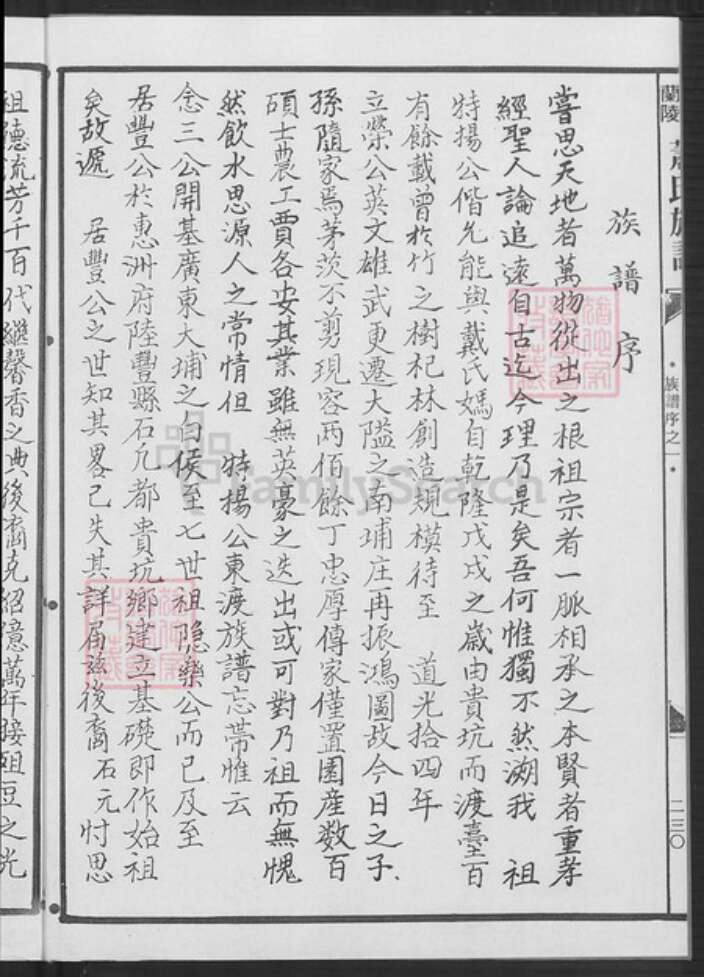 族譜序
嘗思天地者萬物從出之根祖宗者一脈相承之本賢者重孝
經聖人論追遠自古迄今理乃是矣吾何惟獨不然溯我 祖
特揚公偕允能與戴氏媽自乾隆戊戍之歲由貴坑而渡臺百
有餘載曾於竹之樹杞林創造規模待至 道光拾四年
立榮公英文雄武更遷大隘之南埔庄再振鴻圖故今日之子
孫隨家焉茅茨不剪現容兩佰餘丁忠厚傳家僅置園産数百
碩士農工賈各安其業雖無英豪之迭出或可對乃祖而無愧
然飲水思源人之常情但 特揚公東渡族譜忘帶惟云
念三公開基廣東大埔之白侯至七世祖隐樂公而已及至
居豐公於惠洲府陸豐縣石九都貴坑鄉建立基礎即作始祖
矣故遞 居豐公之世知其畧已失其詳届茲後裔石元忖思
祖德流芳千百代繼馨香之典後裔克紹億萬年接俎豆之光
蘭陵 氏族譜
族譜序之一
二三〇
FamilySearch